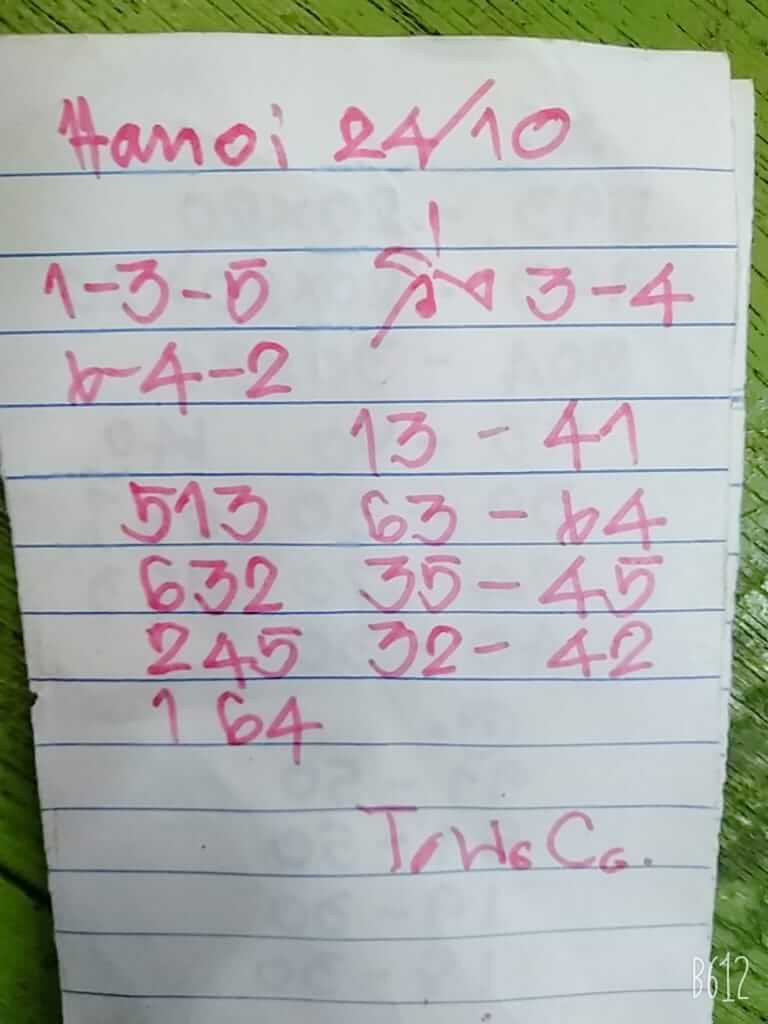 Hanoi 24/10
1-3-5 วิ่ง 3-4
6-4-2
13 - 41
513 63 - 64
632 35 - 45
245 32 - 42
164
B612